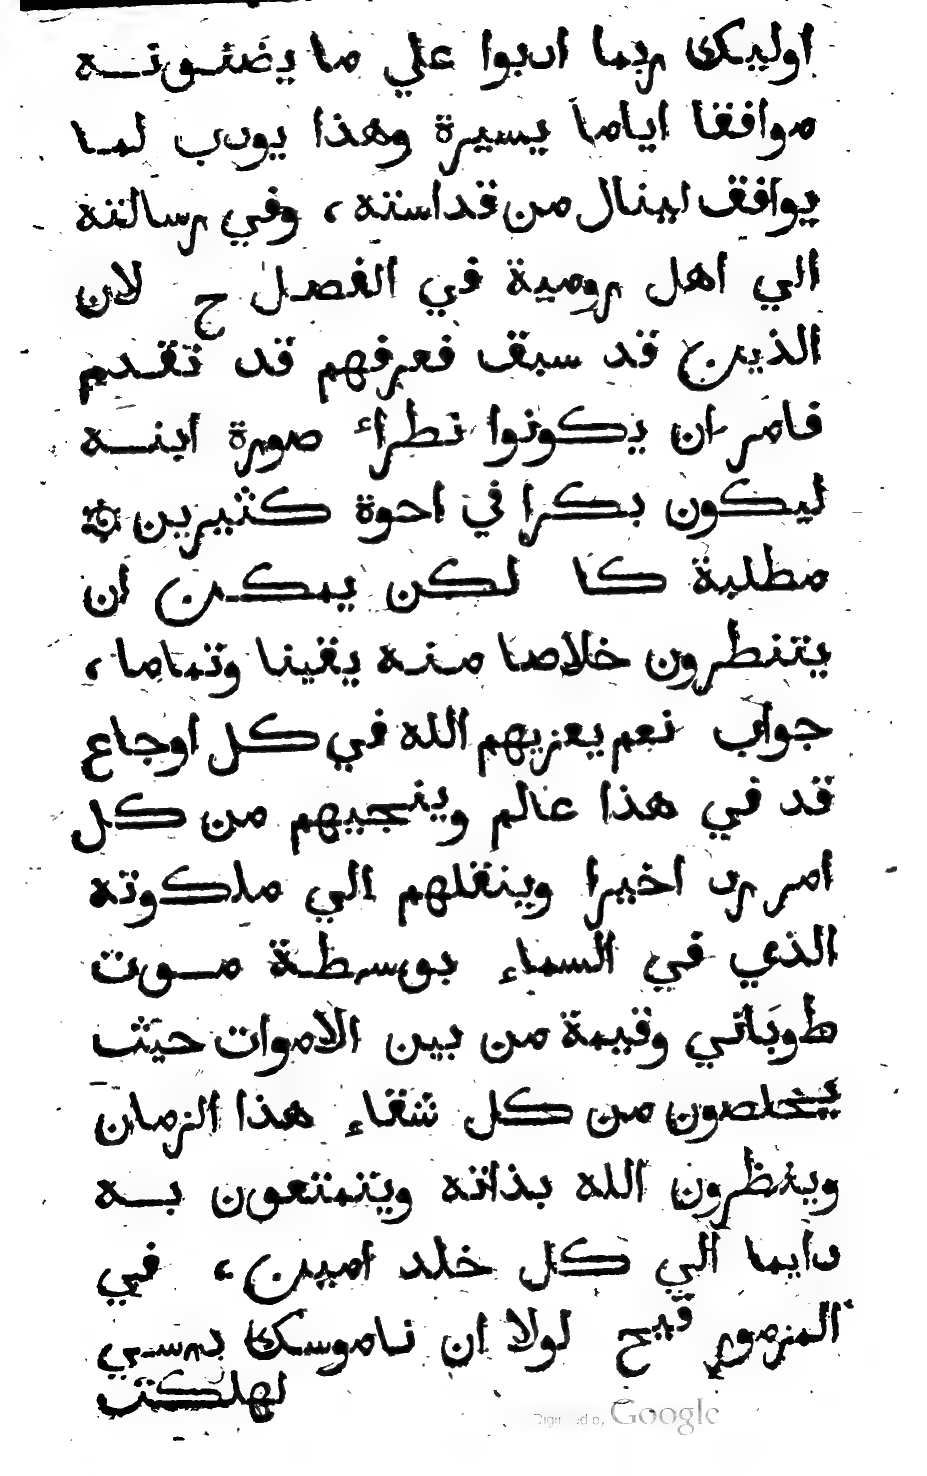 اوليك ربما ادبوا علي ما يضنونه
موافقا اياما يسيرة وهذا يودب لما
يوافق لينال من قداسته، وفي رسالته
الي اهل رومية في الفصل ح لان
الذين قد سبق فعرفهم قد تقدم
فامر ان يكونوا نظراء صورة ابنه
ليكون بكرا في اخوة كثيرين
مطلبة كا لكن يمكن ان
يتنظرون خلاصا منه يقينا وتماما،
جواب نعم يعزيهم الله في كل اوجاع
قد في هذا عالم وينجيهم من كل
امر رد اخيرا وينقلهم الي ملكوته
الذي في السماء بوسطة موت
طوباني وقيمة من بين الاموات حيث
يخلصون من كل شقاء هذا الزمان
وينظرون الله بذاته ويتمتعون به
دايما الي كل خلد امين، في
المزمور قيح لولا ان ناموسك درسي
لهلكت
Digitized by Google